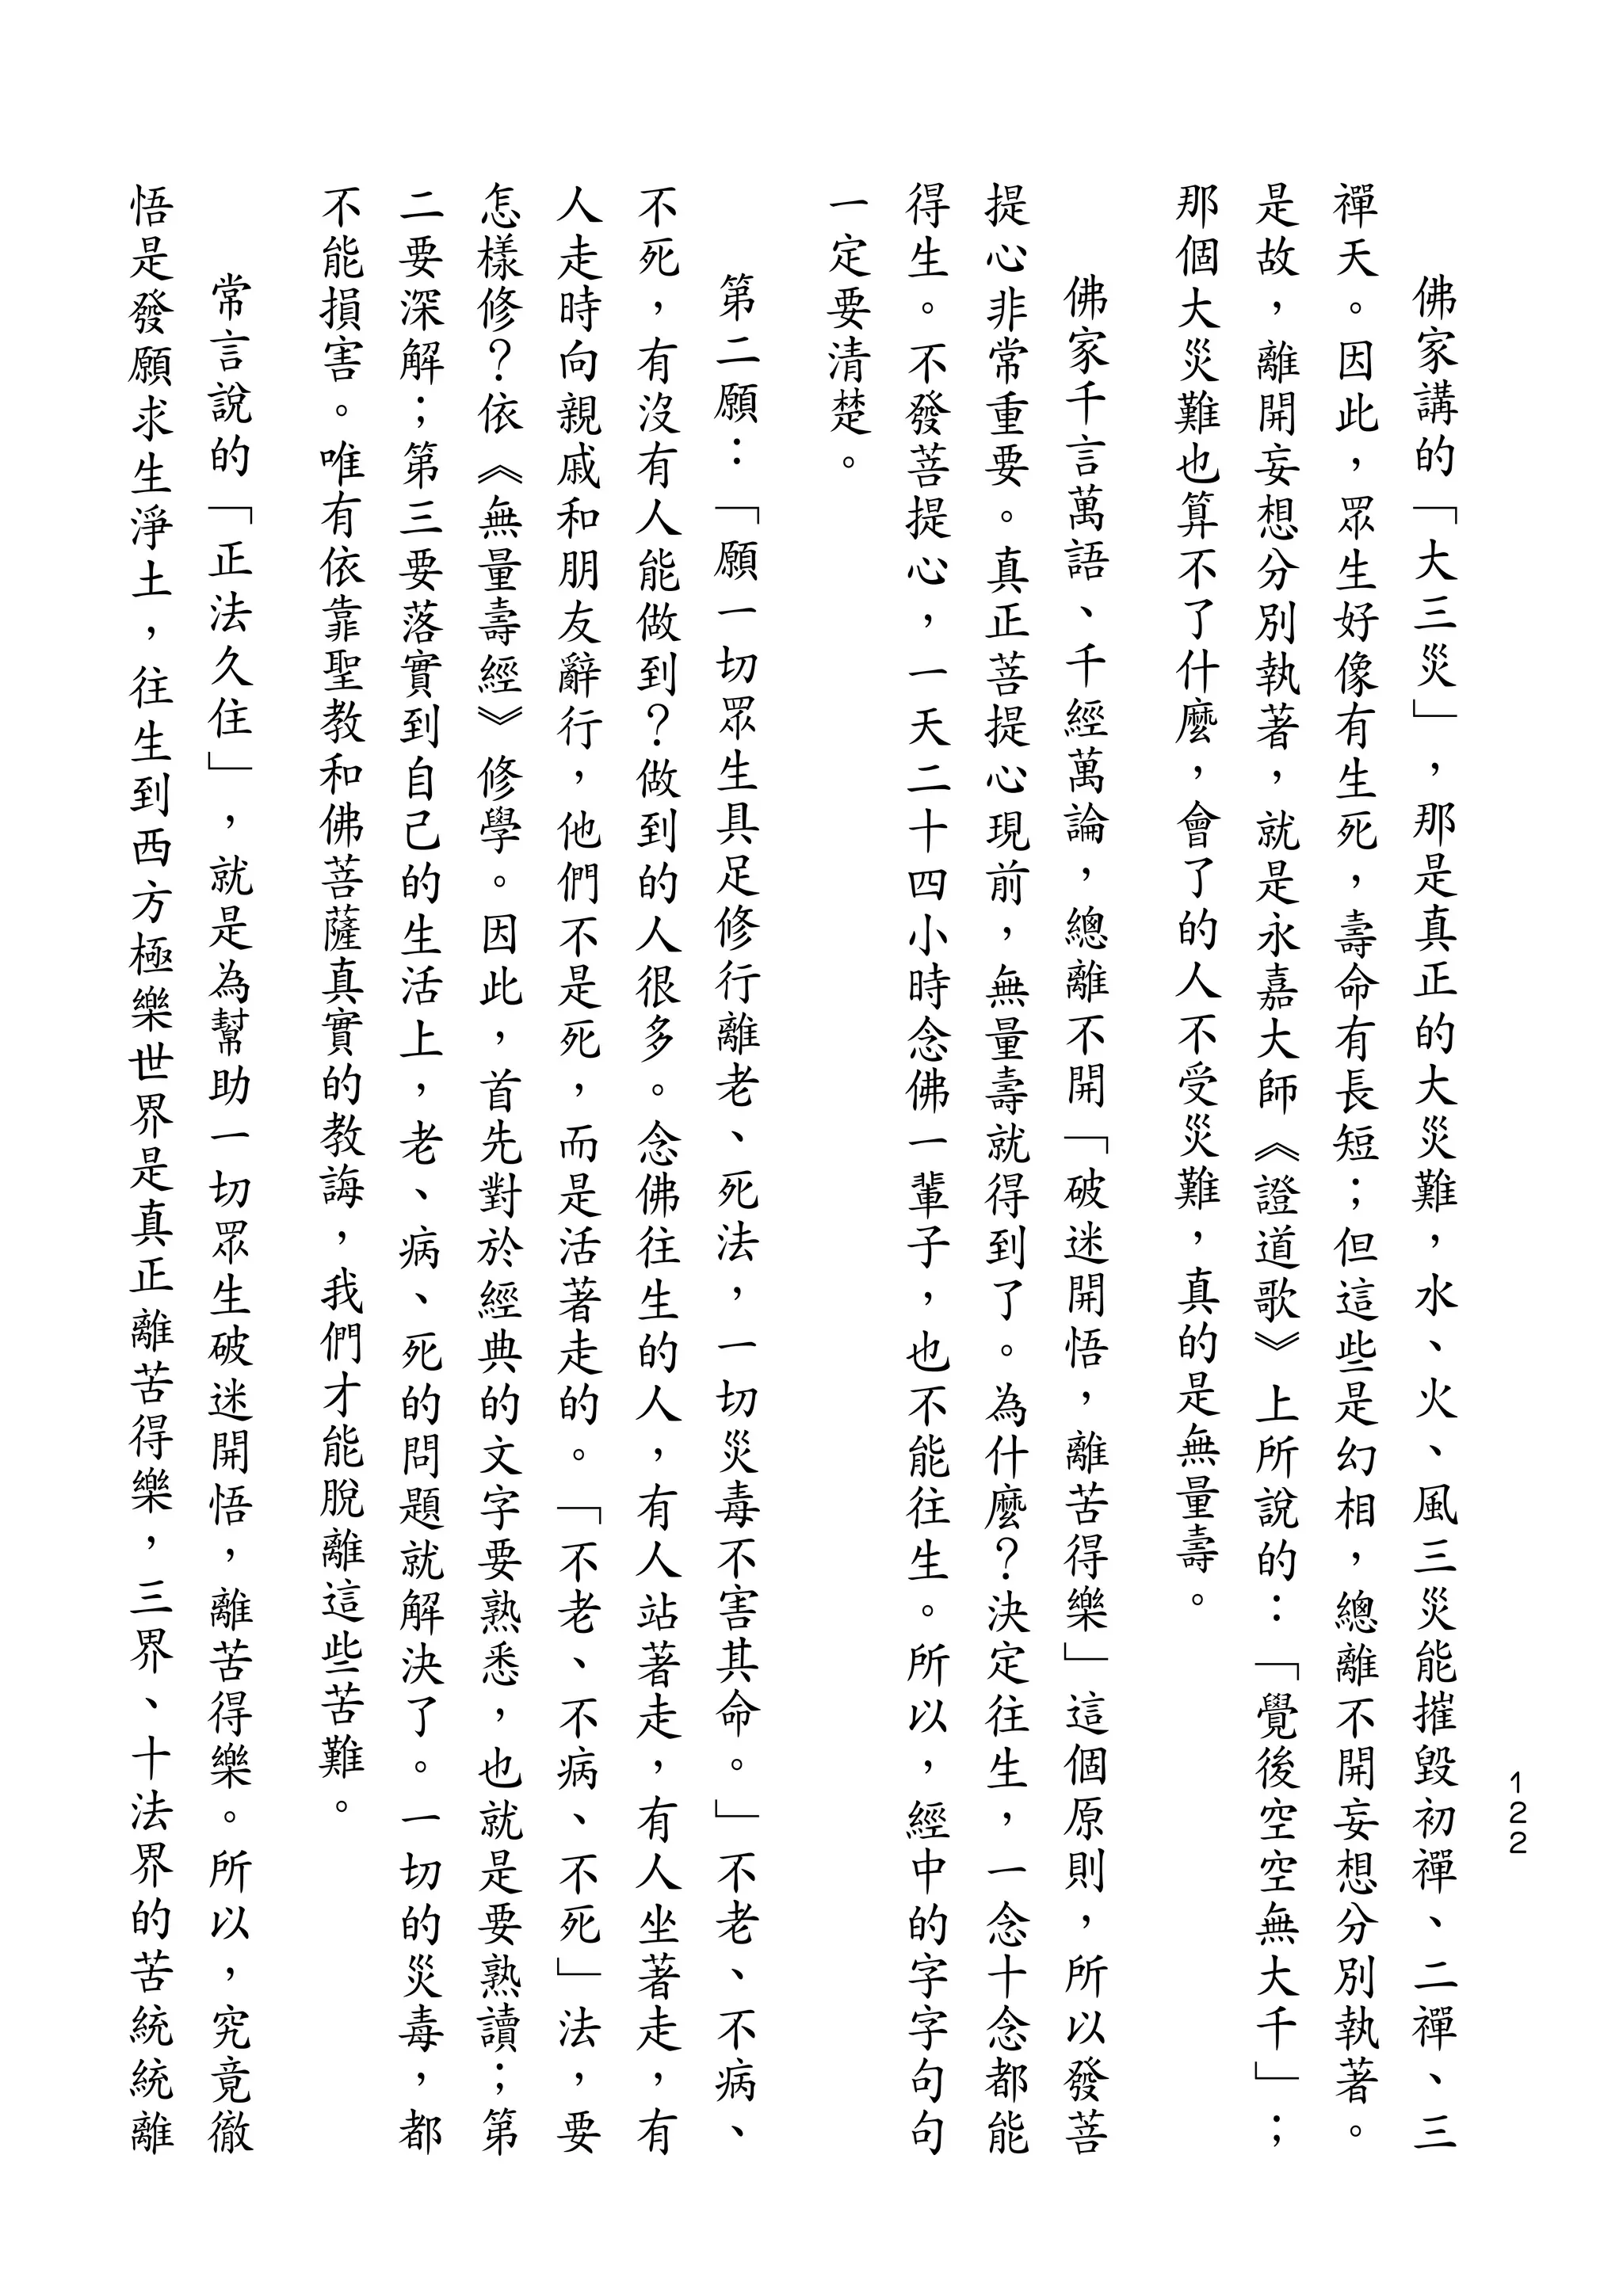 122
佛家講的「大三災」，那是真正的大災難，水、火、風三災能摧毀初禪、二禪、三
禪天。因此，眾生好像有生死，壽命有長短；但這些是幻相，總離不開妄想分別執著。
是故，離開妄想分別執著，就是永嘉大師《證道歌》上所說的：「覺後空空無大千」；
那個大災難也算不了什麼，會了的人不受災難，真的是無量壽。
佛家千言萬語、千經萬論，總離不開「破迷開悟，離苦得樂」這個原則，所以發菩
提心非常重要。真正菩提心現前，無量壽就得到了。為什麼？決定往生，一念十念都能
得生。不發菩提心，一天二十四小時念佛一輩子，也不能往生。所以，經中的字字句句
一定要清楚。
第二願：「願一切眾生具足修行離老、死法，一切災毒不害其命。」不老、不病、
不死，有沒有人能做到？做到的人很多。念佛往生的人，有人站著走，有人坐著走，有
人走時向親戚和朋友辭行，他們不是死，而是活著走的。「不老、不病、不死」法，要
怎樣修？依《無量壽經》修學。因此，首先對於經典的文字要熟悉，也就是要熟讀；第
二要深解；第三要落實到自己的生活上，老、病、死的問題就解決了。一切的災毒，都
不能損害。唯有依靠聖教和佛菩薩真實的教誨，我們才能脫離這些苦難。
常言說的「正法久住」，就是為幫助一切眾生破迷開悟，離苦得樂。所以，究竟徹
悟是發願求生淨土，往生到西方極樂世界是真正離苦得樂，三界、十法界的苦統統離